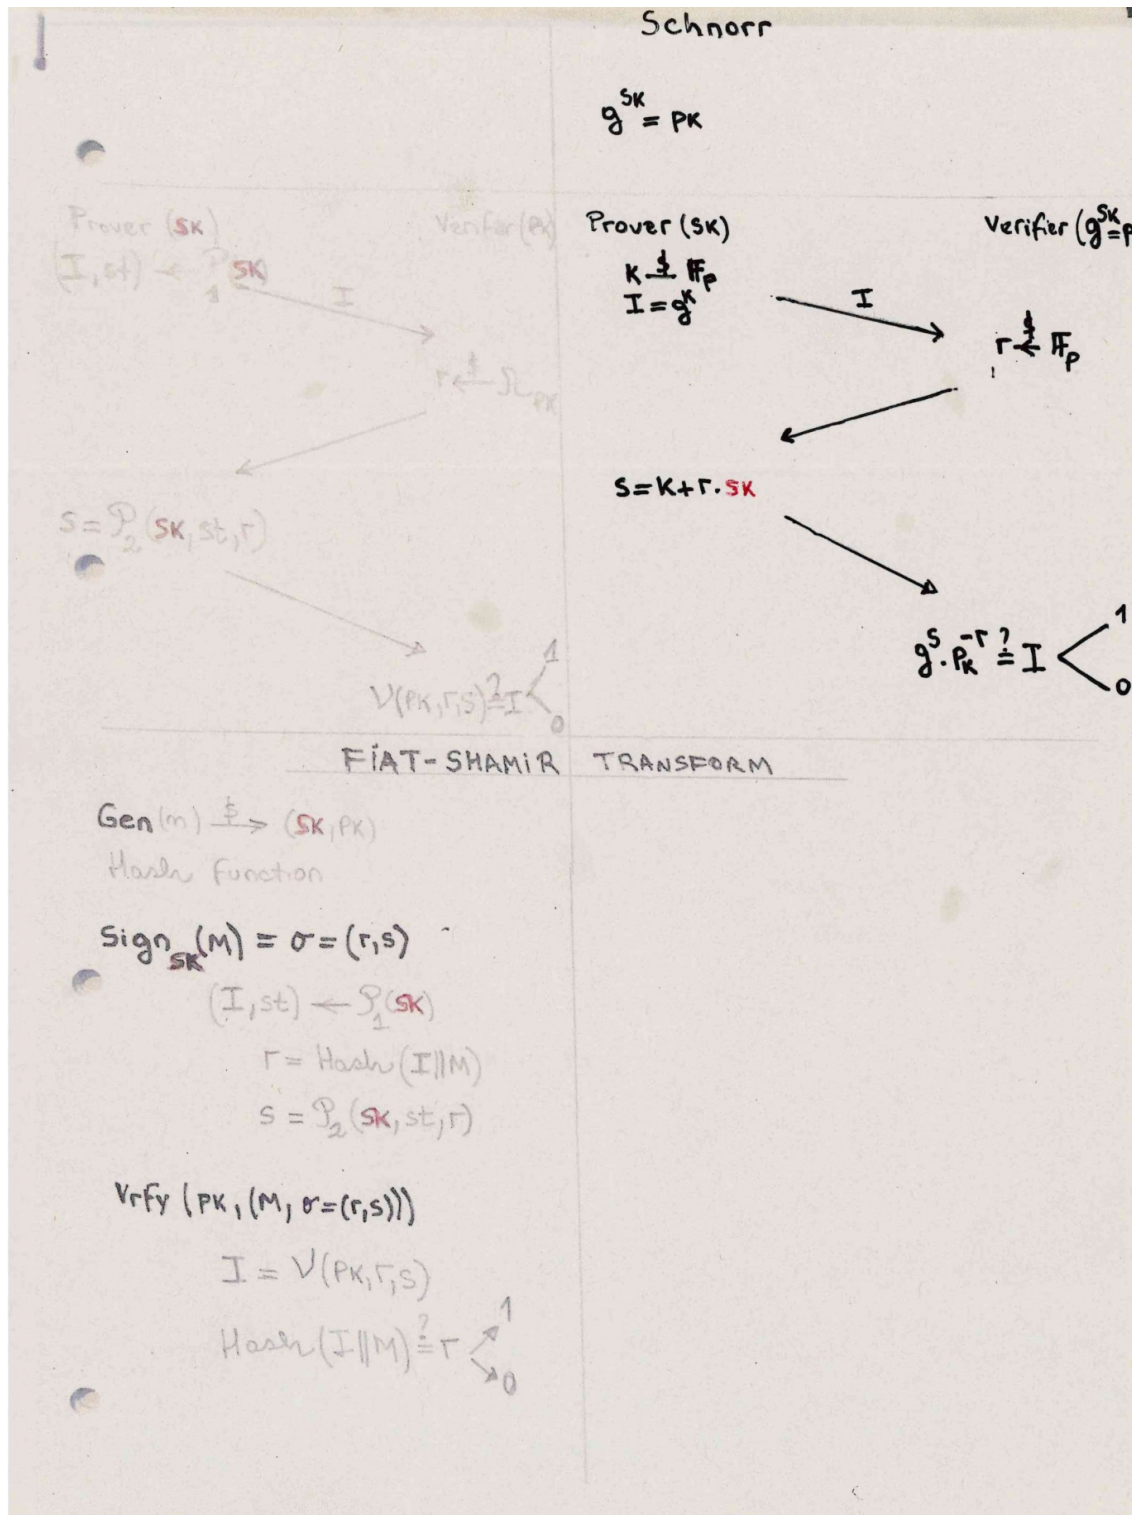 Schnorr
g^SK = PK
Prover (SK)
Verifier (PK)
(I, st) ← P_1(SK)
I
r ←$ Ω_PK
s = P_2(SK, st, r)
V(PK, r, s) ≟ I
1
0
Prover (SK)
Verifier (g^SK = P
K $← F_p
I = g^K
I
r $← F_p
s = K + r · SK
g^s · PK^-r ≟ I
1
0
FIAT-SHAMIR TRANSFORM
Gen(n) $→ (SK, PK)
Hash Function
Sign_SK(M) = σ = (r, s)
(I, st) ← P_1(SK)
r = Hash(I||M)
s = P_2(SK, st, r)
Vrfy (PK, (M, σ=(r,s)))
I = V(PK, r, s)
Hash(I||M) ≟ r
1
0